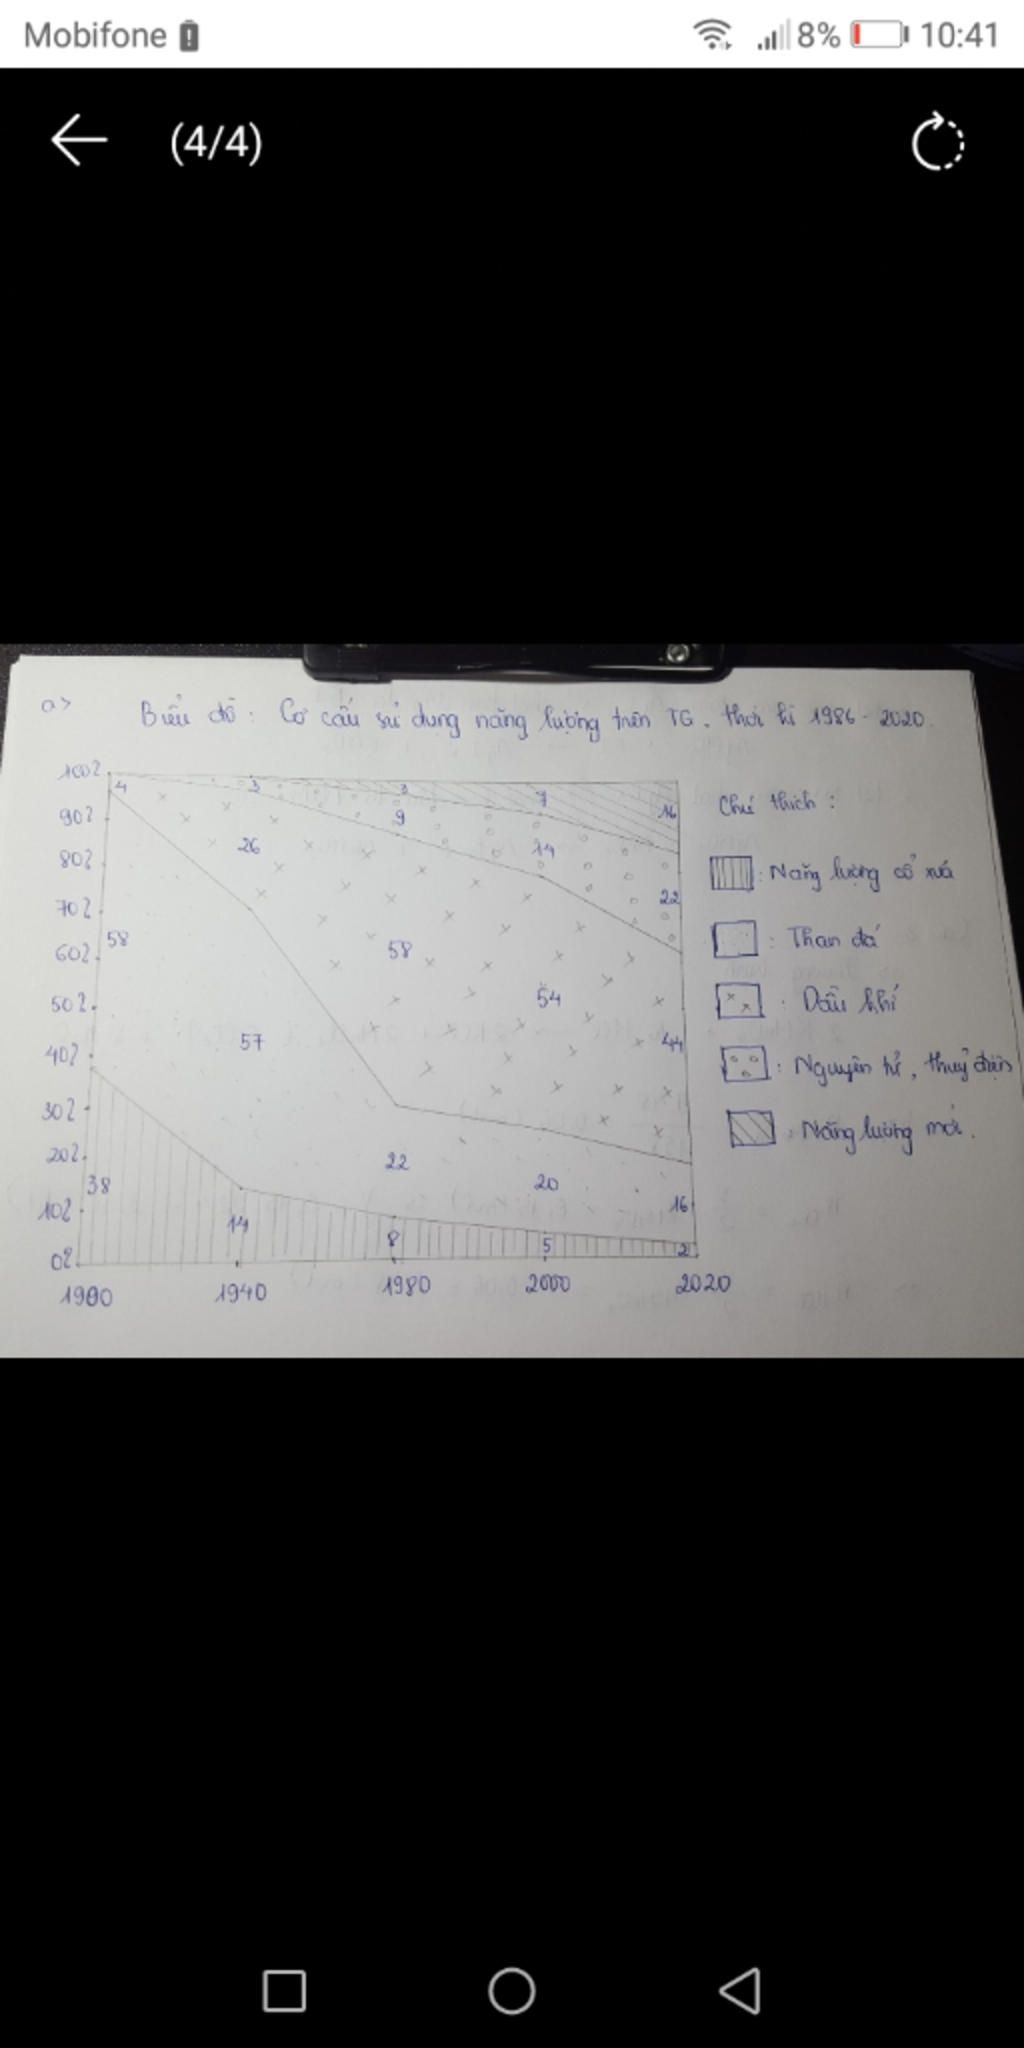 Mobifone 8% 10:41
(4/4)
a> Biểu đồ : Cơ cấu sử dụng năng lượng trên TG, thời kì 1986 - 2020.
100%
90%
80%
70%
60%
50%
40%
30%
20%
10%
0%
4 3 3 7 16
9 14 22
26
58 58 54 44
57
22 20 16
38 14 8 5 2
1900 1940 1980 2000 2020
Chú thích :
: Năng lượng cổ xưa
: Than đá
: Dầu khí
: Nguyên tử, thuỷ điện
: Năng lượng mới.